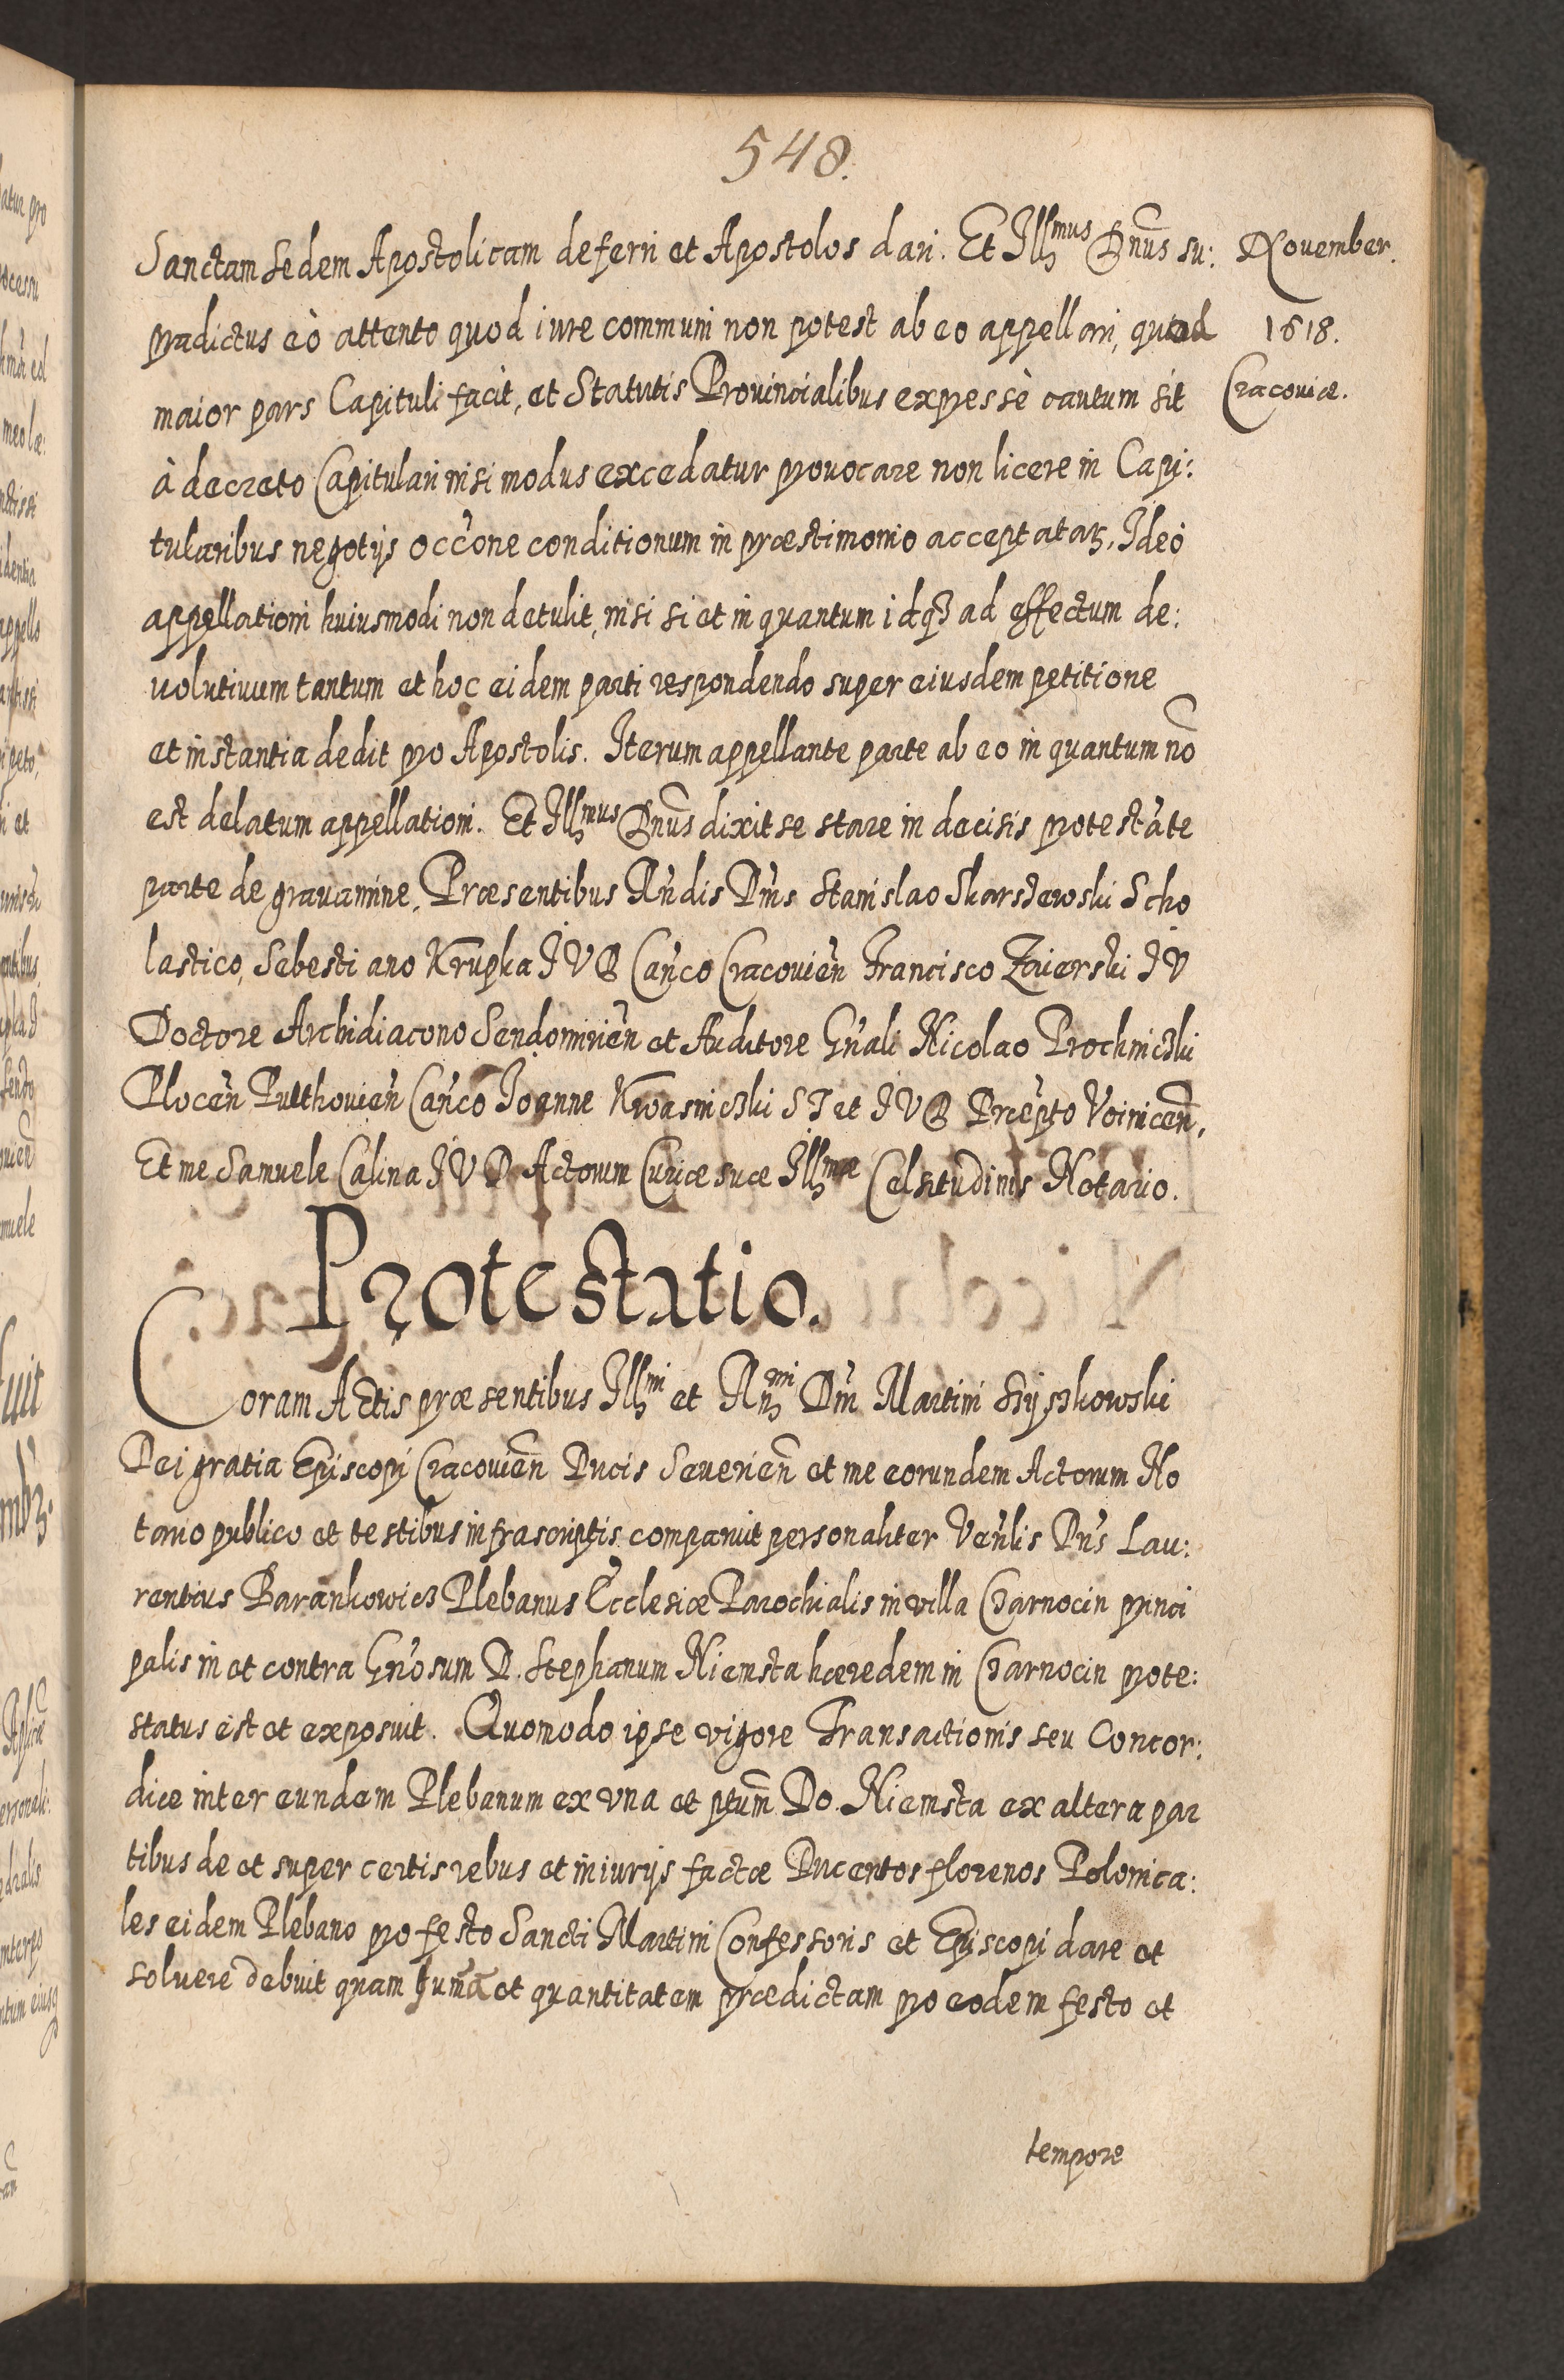 548.
November.
1618.
Cracouiæ.
Sanctam Sedem Apostolicam deferri et Apostolos dari. Et Illmus Dnus su:
pradictus eò attento quod iure communi non potest ab eo appellari, quod
maior pars Capituli facit, et Statutis Prouincialibus expressè cautum sit
à decreto Capitulari nisi modus excedatur prouocare non licere in Capi:
tularibus negotijs occ͂one conditionum in præstimonio acceptataꝝ, Ideò
appellationi huiusmodi non detulit, nisi si et in quantum idqꝫ ad effectum de:
uolutiuum tantum et hoc eidem parti respondendo super eiusdem petitione
et instantia dedit pro Apostolis. Iterum appellante parte ab eo in quantum nõ
est delatum appellationi. Et Illmus Dnus dixit se stare in decisis protestãte
parte de grauamine, Præsentibus Rñdis Dnis Stanislao Skarszewski Scho
lastico, Sebestiano Krupka I V D Cañco Cracouieñ Francisco Zaierski I V
Doctore Archidiacono Sendomirieñ et Auditore Gñali Nicolao Prochniczki
Ploceñ Pulthouieñ Cañco Ioanne Kwasniczki S T et I V D Præpto Voiniceñ,
Et me Samuele Calina I V D Actorum Curiæ suæ Illmæ Celsitudinis Notario.
Protestatio.
Coram Actis præsentibus Illmi et Rnmi Dni Martini Szyszkowski
Dei gratia Episcopi Cracouieñ Ducis Seuerieñ et me eorundem Actorum No
tario publico et testibus infrascriptis comparuit personaliter Veñlis Dñs Lau:
rentius Barankowicz Plebanus Ecclesiæ Parochialis in villa Czarnocin princi
palis in et contra Gñosum D. Stephanum Niemsta hæredem in Czarnocin prote:
status est et exposuit. Quomodo ipse vigore Transactionis seu Concor:
diæ inter eundem Plebanum ex vna et ptum̃ Do. Niemsta ex altera par
tibus de et super certis rebus et iniurijs factæ Ducentos florenos Polonica:
les eidem Plebano pro festo Sancti Martini Confessoris et Episcopi dare et
soluere debuit quam sum̃ã et quantitatem prædictam pro eodem festo et
tempore